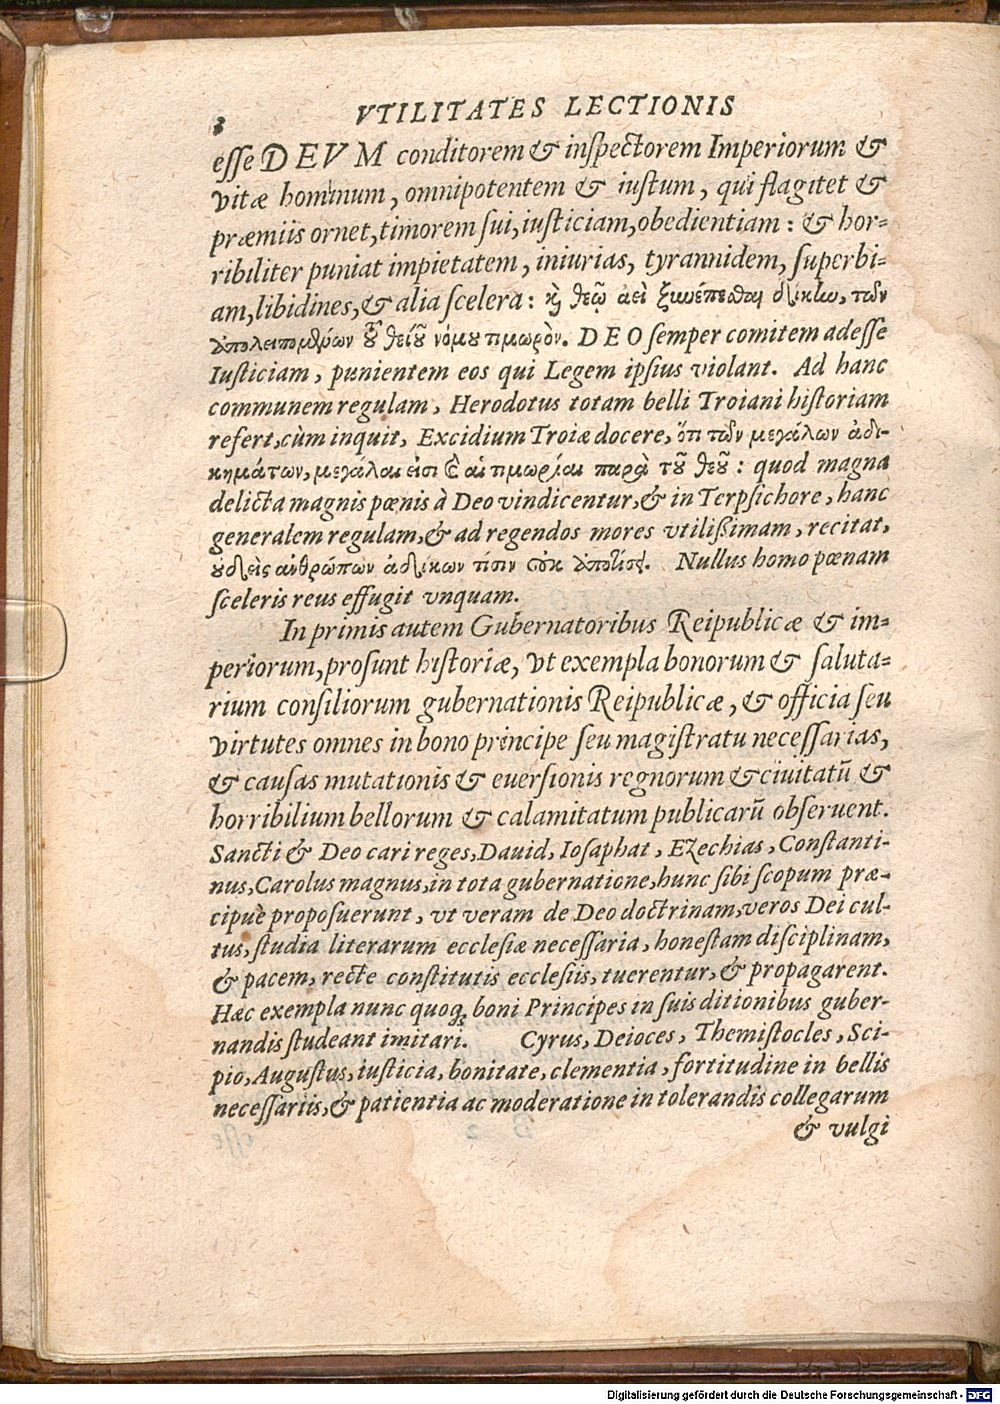 8 VTILITATES LECTIONIS
esse DEVM conditorem & inspectorem Imperiorum &
vitæ hominum, omnipotentem & iustum, qui flagitet &
præmiis ornet, timorem sui, iusticiam, obedientiam: & hor-
ribiliter puniat impietatem, iniurias, tyrannidem, superbi-
am, libidines, & alia scelera: καὶ θεῷ ἀεὶ ξυνέπεσθαι δίκην, τῶν
ἀπολειπομένων τοῦ θείου νόμου τιμωρὸν. DEO semper comitem adesse
Iusticiam, punientem eos qui Legem ipsius violant. Ad hanc
communem regulam, Herodotus totam belli Troiani historiam
refert, cùm inquit, Excidium Troiæ docere, ὅτι τῶν μεγάλων ἀδι-
κημάτων, μεγάλαι εἰσὶ καὶ αἱ τιμωρίαι παρὰ τοῦ θεοῦ: quod magna
delicta magnis pœnis à Deo vindicentur, & in Terpsichore, hanc
generalem regulam, & ad regendos mores vtilißimam, recitat,
οὐδεὶς ἀνθρώπων ἀδίκων τίσιν οὐκ ἀποτίσει. Nullus homo pœnam
sceleris reus effugit vnquam.
In primis autem Gubernatoribus Reipublicæ & im-
periorum, prosunt historiæ, vt exempla bonorum & saluta-
rium consiliorum gubernationis Reipublicæ, & officia seu
virtutes omnes in bono principe seu magistratu necessarias,
& causas mutationis & euersionis regnorum & ciuitatū &
horribilium bellorum & calamitatum publicarū obseruent.
Sancti & Deo cari reges, Dauid, Iosaphat, Ezechias, Constanti-
nus, Carolus magnus, in tota gubernatione, hunc sibi scopum præ-
cipuè proposuerunt, vt veram de Deo doctrinam, veros Dei cul-
tus, studia literarum ecclesiæ necessaria, honestam disciplinam,
& pacem, recte constitutis ecclesiis, tuerentur, & propagarent.
Hæc exempla nunc quoqꝫ boni Principes in suis ditionibus guber-
nandis studeant imitari. Cyrus, Deioces, Themistocles, Sci-
pio, Augustus, iusticia, bonitate, clementia, fortitudine in bellis
necessariis, & patientia ac moderatione in tolerandis collegarum
& vulgi
Digitalisierung gefördert durch die Deutsche Forschungsgemeinschaft - DFG